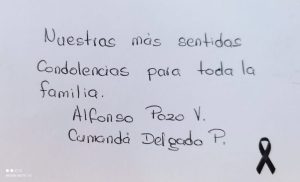 Nuestras más sentidas
Condolencias para toda la
familia.
Alfonso Pozo V.
Cumandá Delgado P.